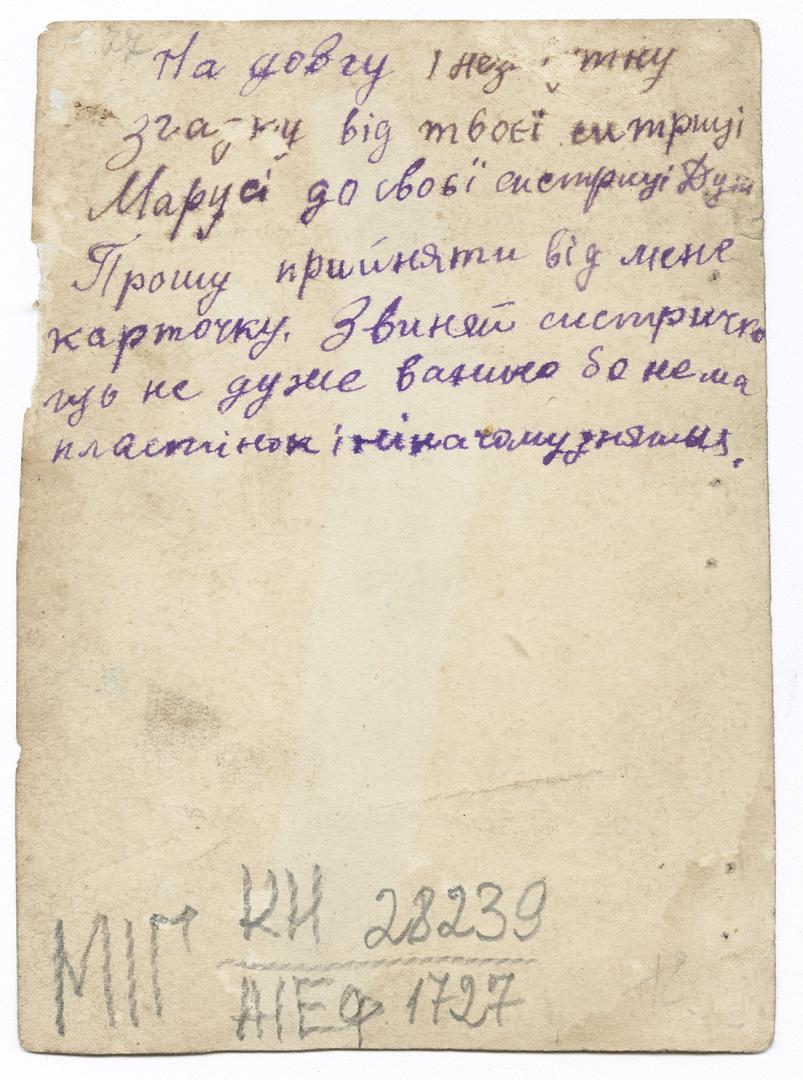 27
На довгу і нез
зга ку від твоєї ситриці
Марусі до своєї систриці
Прошу прийняти від мене
карточку. Звиняй систричко
що не дуже важно бо нема
пластінок і ніначому зняться.
КН 28239
МІГ АІЕФ 1727